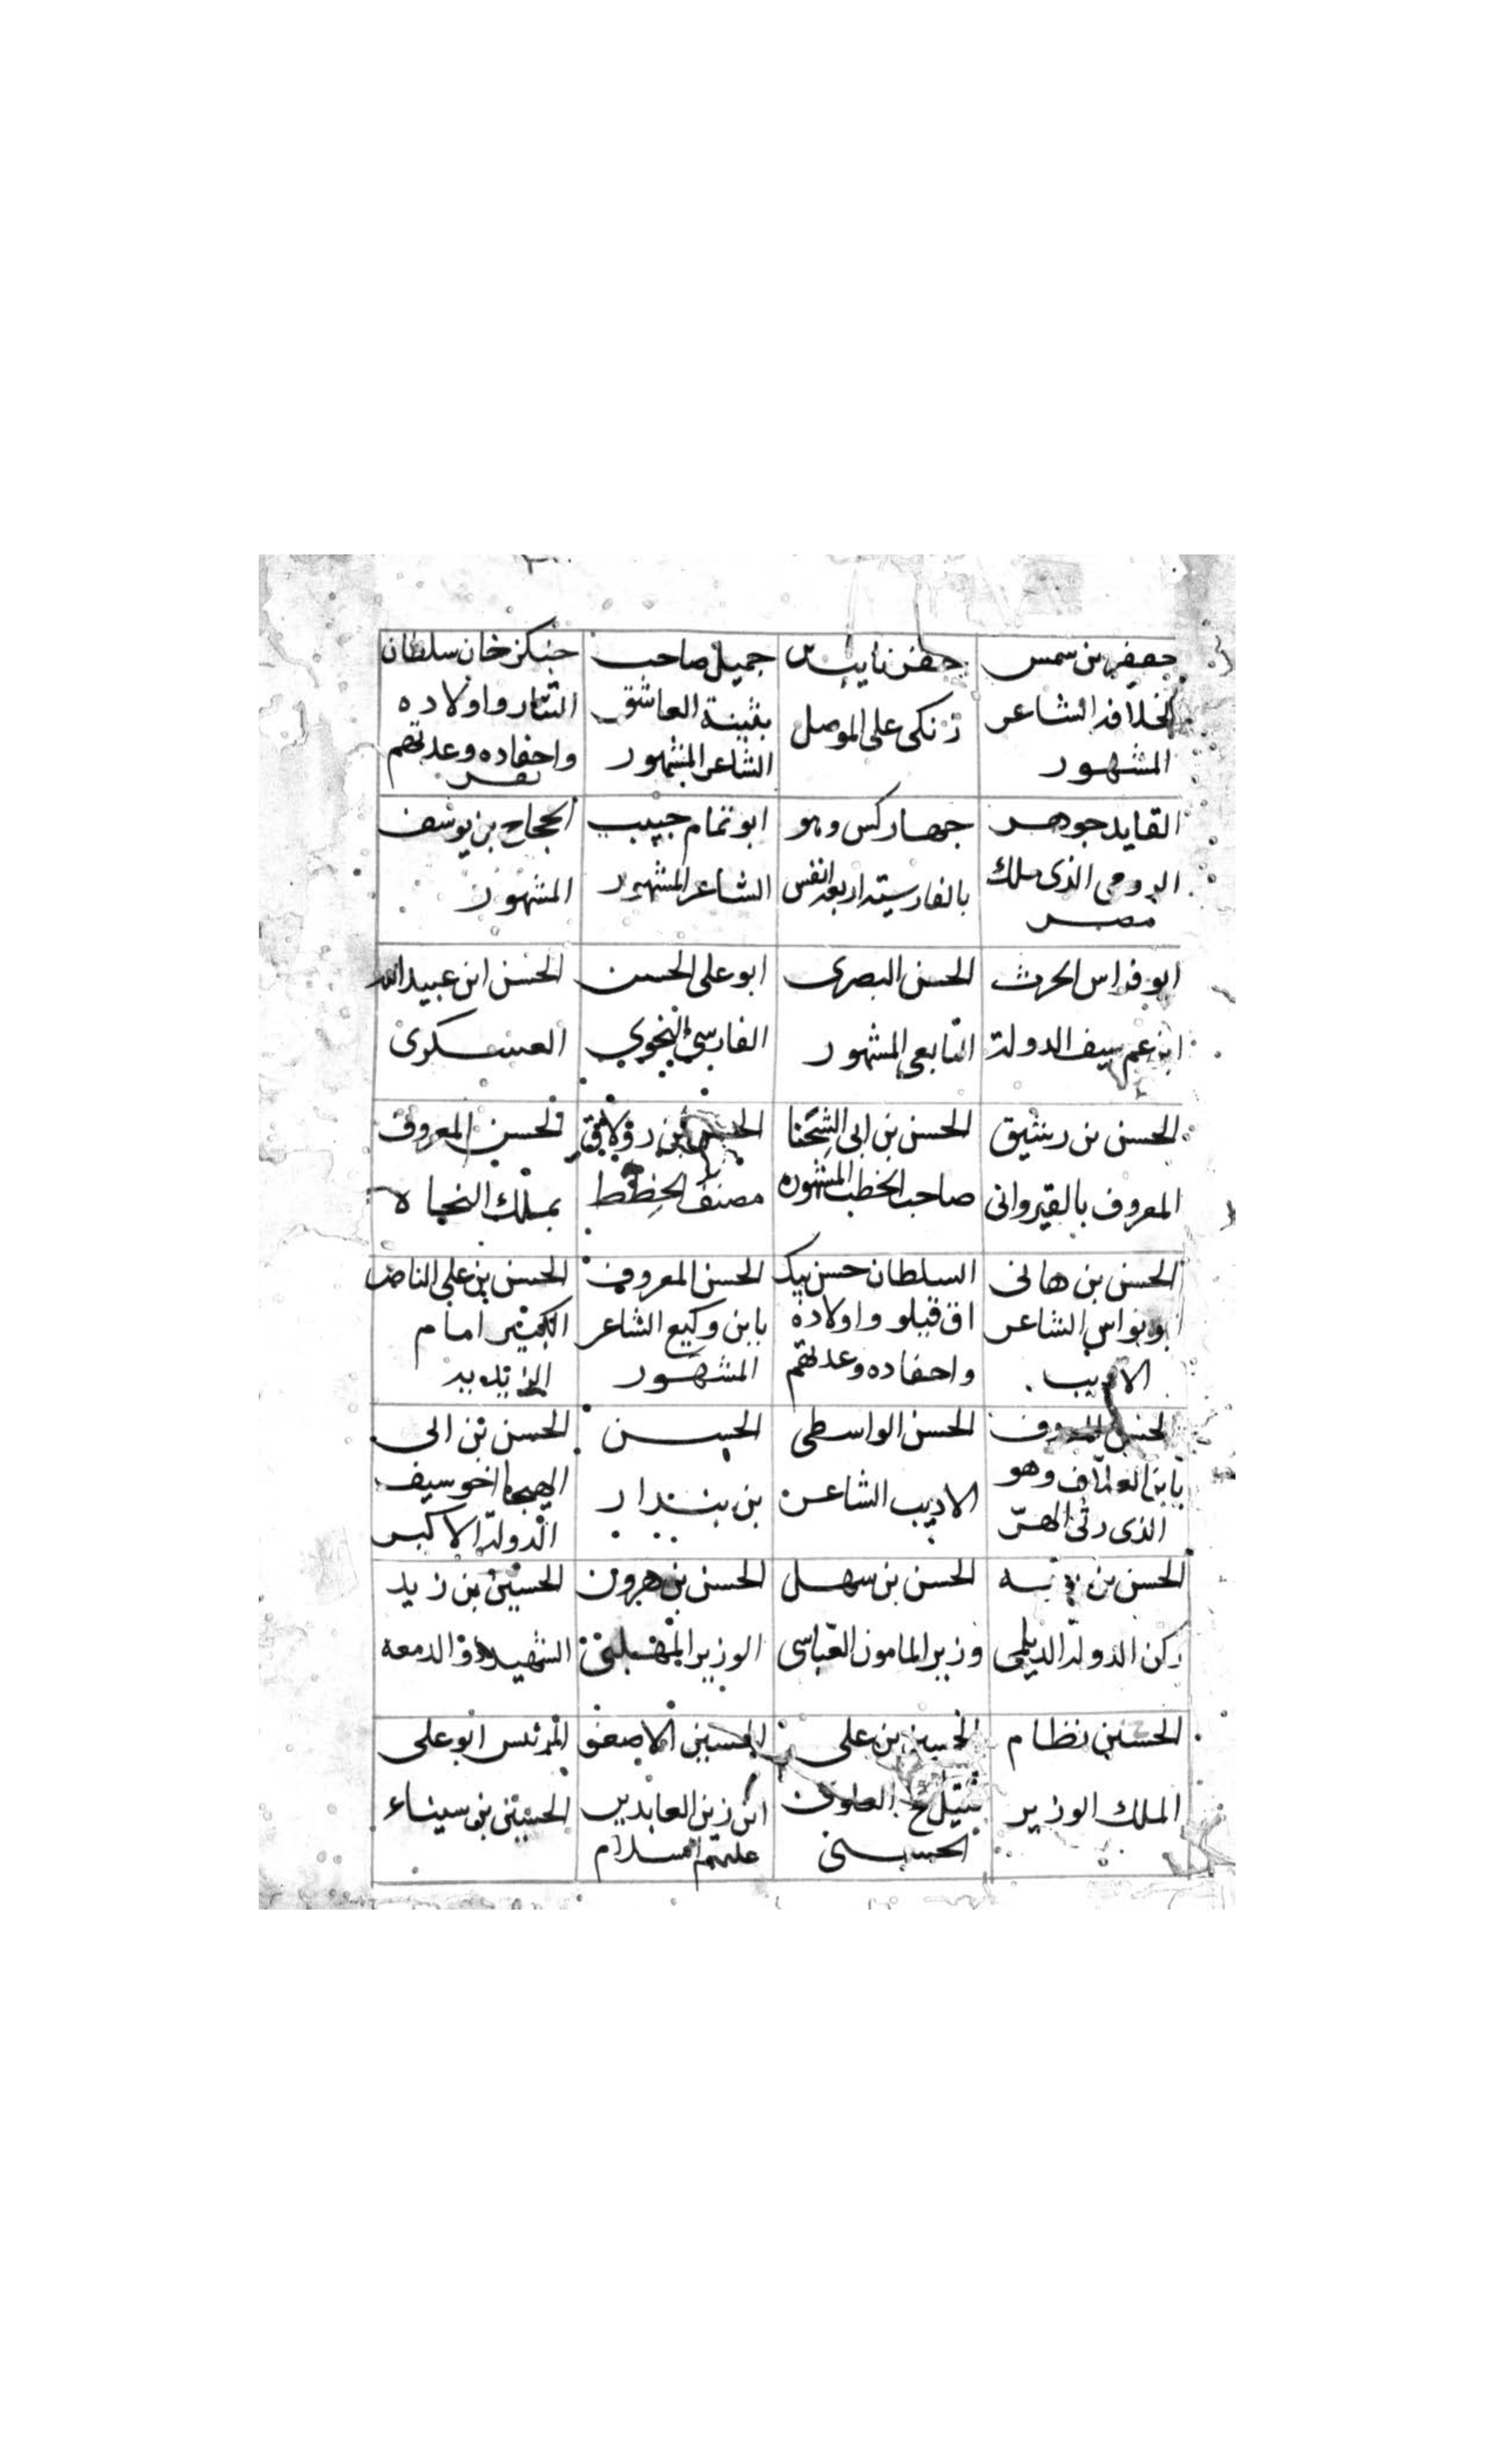 جعفر بن شمس
الخلافه الشاعر
المشهور
جعفر نايب
زنكى على الموصل
جميل صاحب
بثينة العاشق
الشاعر المشهور
جنكز خان سلطان
التتار واولاده
واحفاده وعدتهم
نفر
القايد جوهر
الرومى الذى ملك
مصر
جهاركس وهو
بالفارسية اربعة انفس
ابو تمام حبيب
الشاعر المشهور
الحجاج بن يوسف
المشهور
ابو فراس الحرث
ابن عم سيف الدولة
الحسن البصرى
التابعى المشهور
ابو على الحسن
الفارسي النحوي
الحسن ابن عبيد الله
العسكرى
الحسن بن رشيق
المعروف بالقيروانى
الحسن بن ابى الشحنا
صاحب الخطب المشهوره
الحسن بن زولاق
مصنف الخطط
الحسن المعروف
بملك النحاه
الحسن بن هانى
ابو نواس الشاعر
الاديب
السلطان حسن بيك
اق قيلو واولاده
واحفاده وعدتهم
الحسن المعروف
بابن وكيع الشاعر
المشهور
الحسن بن على الناصر
الكبير امام
الزيديه
الحسن المعروف
بابن العلاف وهو
الذى رثى الهر
الحسن الواسطى
الاديب الشاعر
الحسن
بن بندار
الحسن بن ابى
الهيجا اخو سيف
الدولة الاكبر
الحسن بن بويه
ركن الدولة الديلمى
الحسن بن سهل
وزير المامون العباسى
الحسن بن هرون
الوزير المهلبى
الحسين بن زيد
الشهيد ذو الدمعه
الحسين نظام
الملك الوزير
الحسين بن على
العلوى
الحسينى
الحسين الاصغر
ابن زين العابدين
عليهم السلام
الرئيس ابو على
الحسين بن سيناء